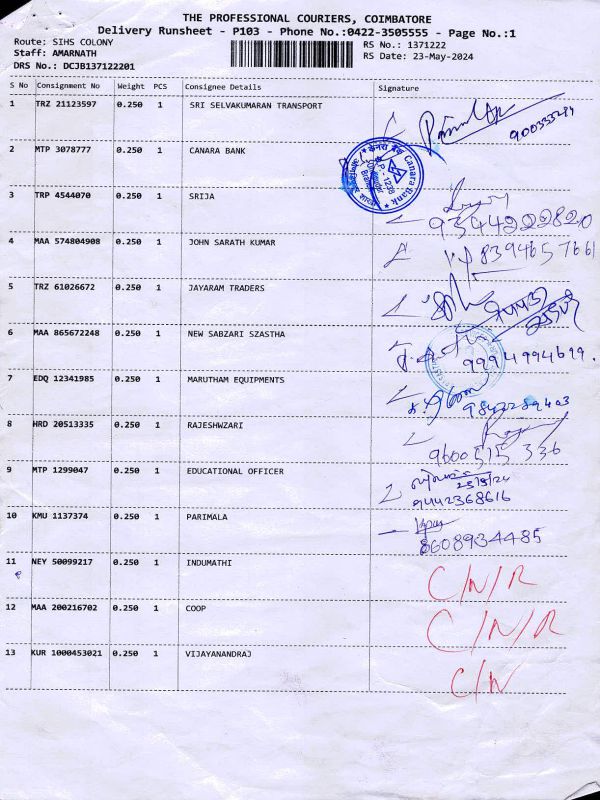 THE PROFESSIONAL COURIERS, COIMBATORE
Delivery Runsheet - P103 - Phone No.:0422-3505555 - Page No.:1
Route: SIHS COLONY RS No.: 1371222
Staff: AMARNATH RS Date: 23-May-2024
DRS No.: DCJB137122201
S No Consignment No Weight PCS Consignee Details Signature
1 TRZ 21123597 0.250 1 SRI SELVAKUMARAN TRANSPORT
2 MTP 3078777 0.250 1 CANARA BANK
Canara Bank
3 TRP 4544070 0.250 1 SRIJA
9344222820
4 MAA 574804908 0.250 1 JOHN SARATH KUMAR 8394657661
5 TRZ 61026672 0.250 1 JAYARAM TRADERS
6 MAA 865672248 0.250 1 NEW SABZARI SZASTHA
9994994699.
7 EDQ 12341985 0.250 1 MARUTHAM EQUIPMENTS
9842289403
8 HRD 20513335 0.250 1 RAJESHWZARI
9600515 336
9 MTP 1299047 0.250 1 EDUCATIONAL OFFICER
23/5/24
9442368616
10 KMU 1137374 0.250 1 PARIMALA
8608934485
11 NEY 50099217 0.250 1 INDUMATHI C/N/R
12 MAA 200216702 0.250 1 COOP C/N/R
13 KUR 1000453021 0.250 1 VIJAYANANDRAJ C/N